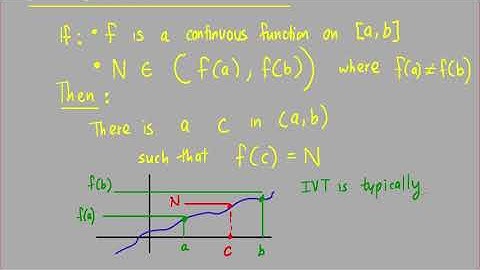 If: • f is a continuous function on [a,b]
• N ∈ (f(a), f(b)) where f(a)≠f(b)
Then:
There is a c in (a,b)
such that f(c) = N
f(b)
N
f(a)
a
c
b
IVT is typically